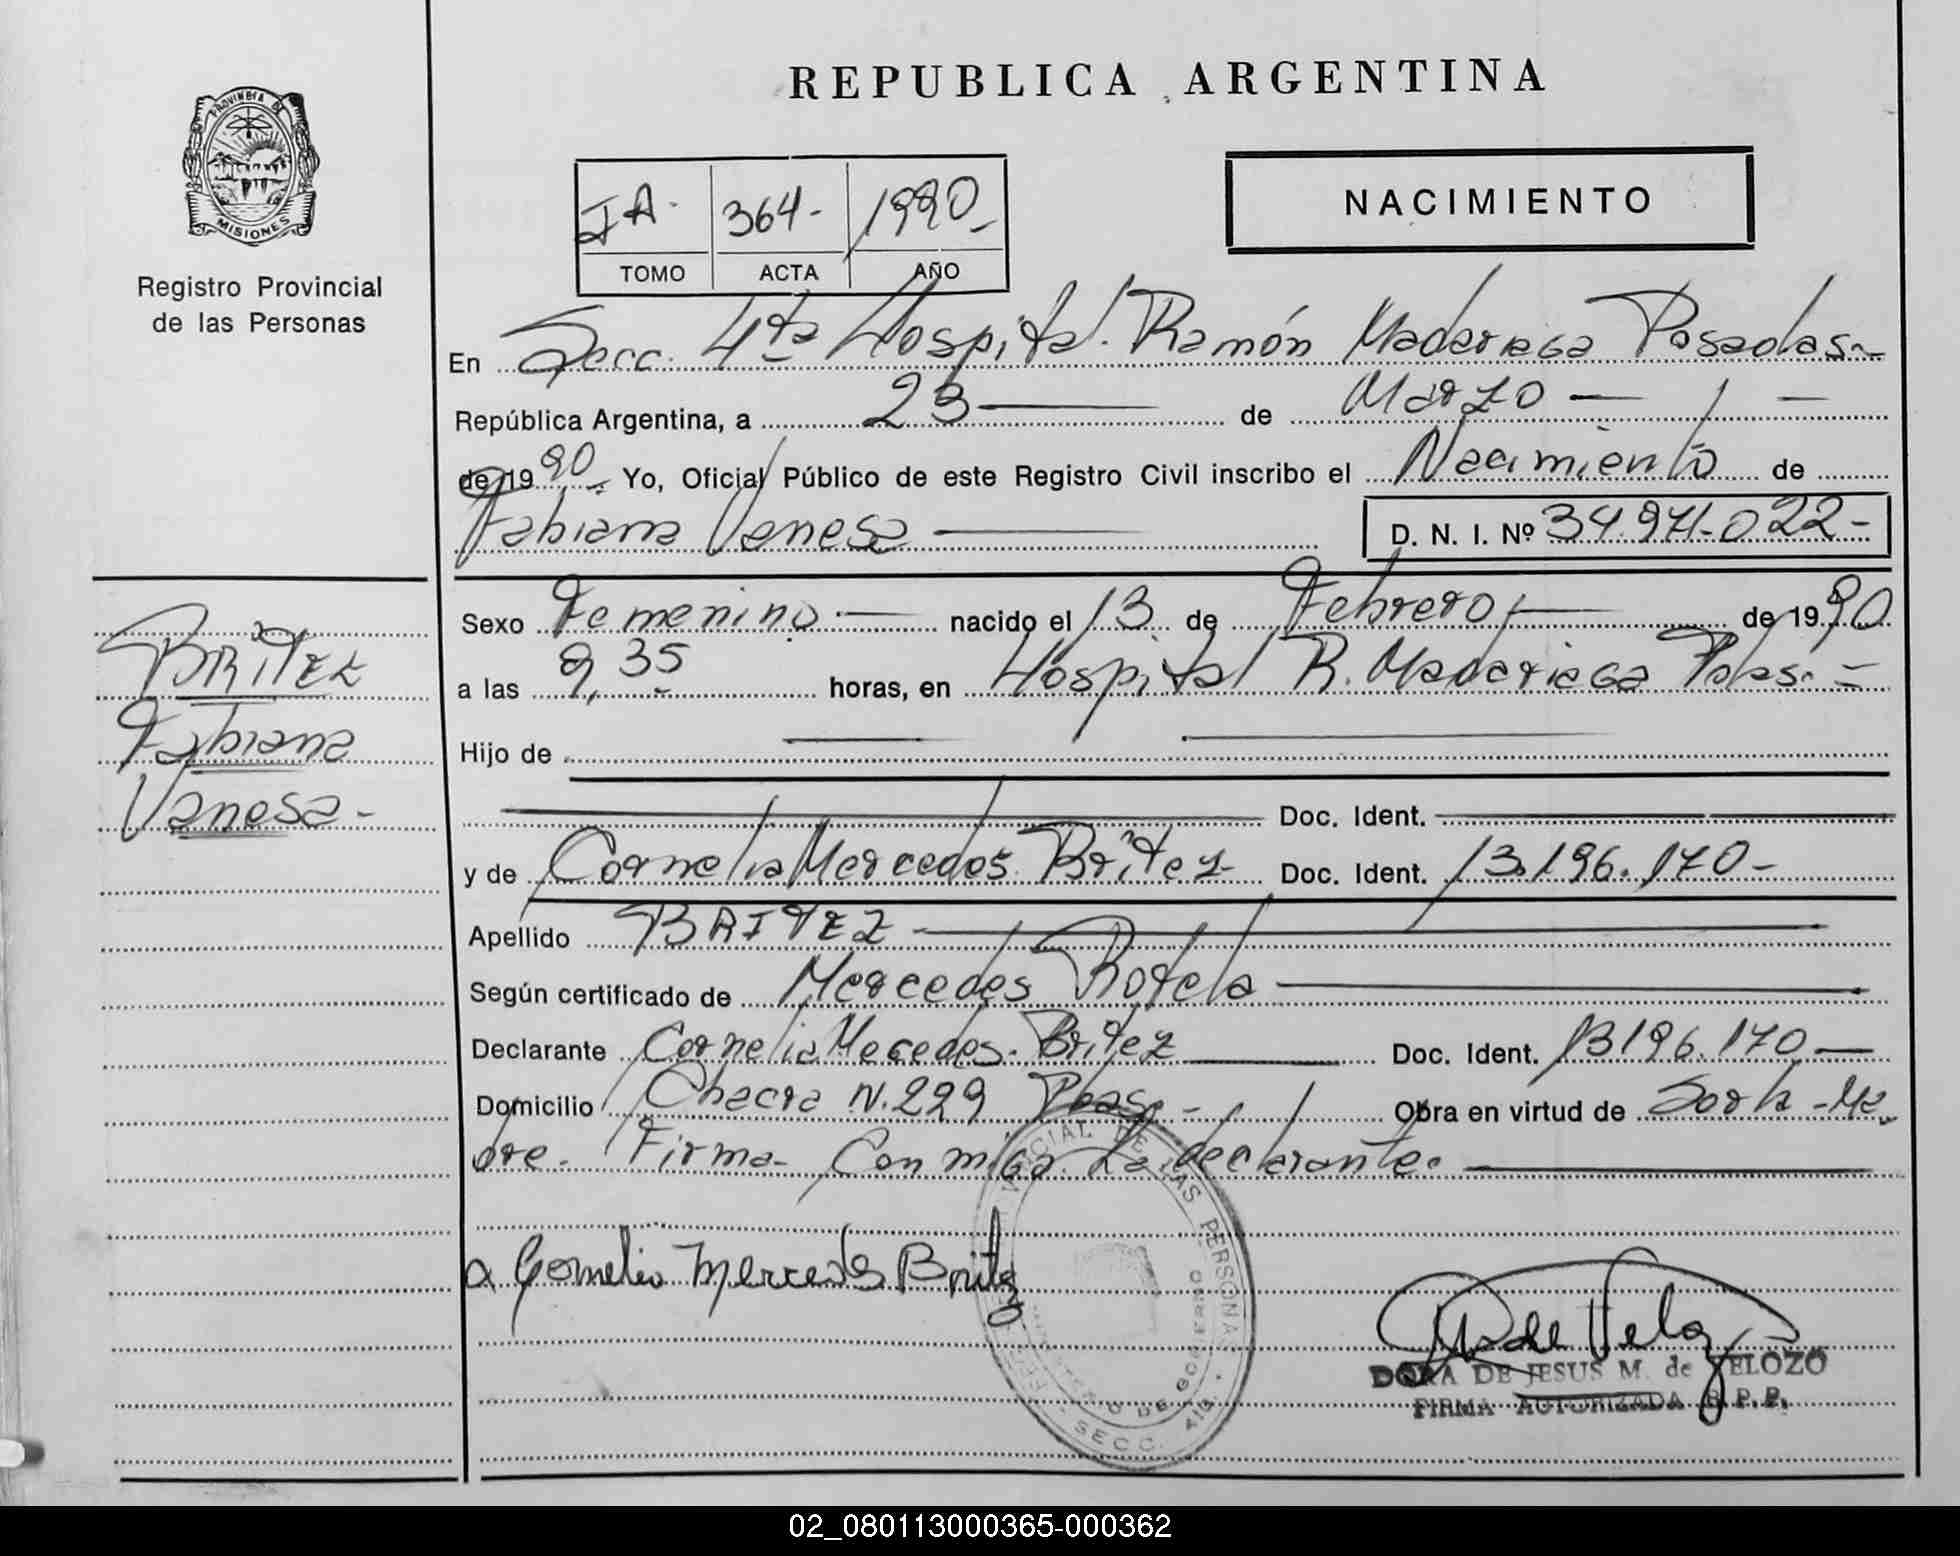 REPUBLICA ARGENTINA
PROVINCIA DE
MISIONES
Registro Provincial
de las Personas
NACIMIENTO
IA- 364- 1990-
TOMO ACTA AÑO
En Secc. 4ta Hospital. Ramón Madariaga Posadas-
República Argentina, a 23 de Marzo
de 1990. Yo, Oficial Público de este Registro Civil inscribo el Nacimiento de
Fabiana Vanesa
D. N. I. Nº 34.971.022-
Sexo Femenino nacido el 13 de Febrero de 1990
a las 9,35 horas, en Hospital R. Madariaga Pdas.-
Hijo de
Doc. Ident.
y de Cornelia Mercedes Britez Doc. Ident. 13.196.170-
Apellido BRITEZ
Según certificado de Mercedes Rotela
Declarante Cornelia Mecedes. Britez Doc. Ident. 13196.170
Domicilio Chacra N.229 Pdas.- Obra en virtud de Ser la -Ma
dre. Firma Conmigo La declarante.
BRITEZ
Fabiana
Vanesa-
Cornelia Mercedes Britez
DORA DE JESUS M. de VELOZO
FIRMA AUTORIZADA R.P.P.
DE LAS PERSONAS
DE GOBIERNO
SECC. 4ta.
02_080113000365-000362